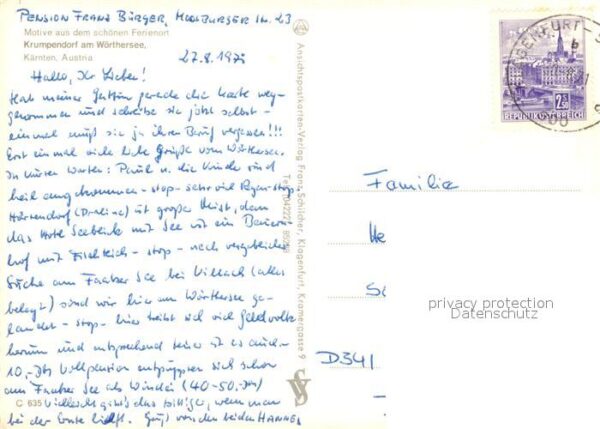 PENSION FRANZ BÜRGER, MOOSBURGER STR. 23
Motive aus dem schönen Ferienort
Krumpendorf am Wörthersee,
Kärnten, Austria
27.8.197
Hallo, Ihr Lieben!
Hab meiner Gattin gerade die Karte weg-
genommen und schreibe sie jetzt selbst -
einmal muß sie ja ihren Beruf vergessen!!!
Erst einmal viele liebe Grüße vom Wörthersee.
In kurzen Worten: Paul u. die Kinder sind
heil angekommen - stop - sehr viel Regen - stop -
(Dreline) ist großer Mist, denn
das Hotel Seeblick mit See ist ein Bauern-
hof mit Fischteich - stop - nach vergeblicher
Suche am Faaker See bei Villach (alles
belegt) sind wir hier am Wörthersee ge-
landet - stop - hier treibt sich viel Geldvolk
herum und entsprechend teuer ist es auch -
10,- DM Vollpension entpuppen sich schon
am Faaker See als (40-50,- DM)
Vielleicht wird's das billiger, wenn man
bei der Ernte hilft. Gruß von den beiden HANNE
C 635
Ansichtspostkarten-Verlag Franz Schilcher, Klagenfurt, Kramergasse 9
Tel. 04222
SV
KLAGENFURT
b
2.50
REPUBLIK ÖSTERREICH
Familie
He
Sc
privacy protection
Datenschutz
D341